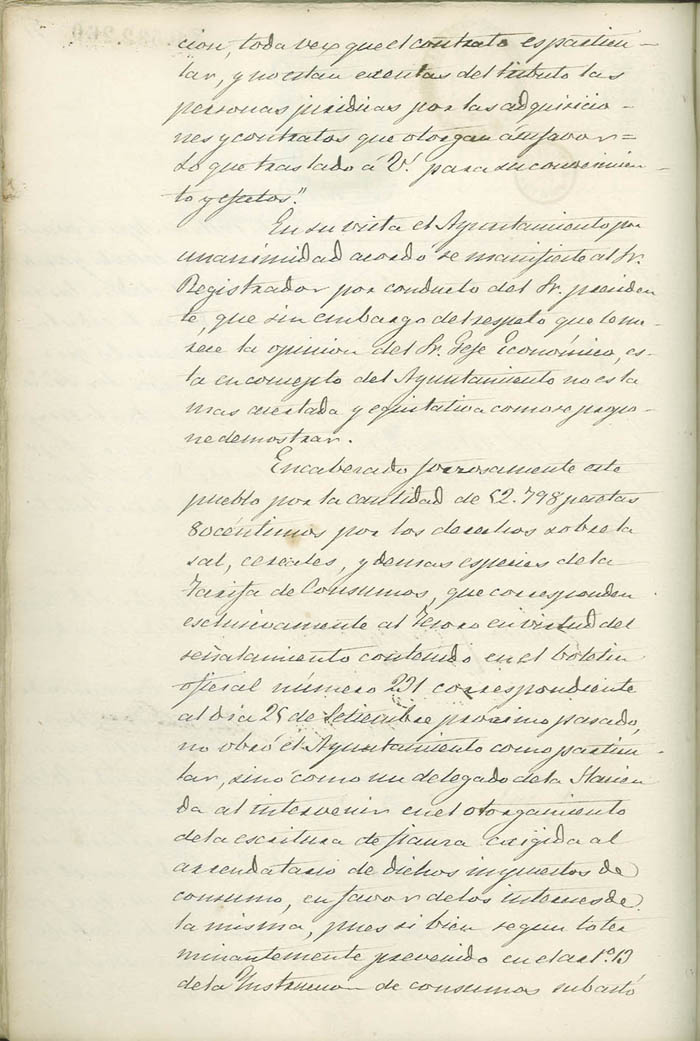 cion, toda vez que el contrato es particu-
lar, y no estan exentas del tributo las
personas juridicas por las adquisicio-
nes y contratos que otorgan á su favor=
Lo que traslado á V. para su conocimien-
to y efectos."
En su vista el Ayuntamiento por
unanimidad acordó se manifieste al Sr.
Registrador por conducto del Sr. presiden
te, que sin embargo del respeto que le me-
rece la opinion del Sr. Gefe Económico, es-
ta en concepto del Ayuntamiento no es la
mas acertada y equitativa como se propo-
ne demostrar.
Encabezado forzosamente este
pueblo por la cantidad de 52.798 pesetas
80 centimos por los derechos sobre la
sal, cereales, y demas especies de la
Tarifa de Consumos, que corresponden
esclusivamente al Tesoro en virtud del
señalamiento contenido en el boletin
oficial número 231 correspondiente
al dia 25 de Setiembre próximo pasado,
no obró el Ayuntamiento como particu-
lar, sino como un delegado de la Hacien
da al intervenir en el otorgamiento
de la escritura de fianza exigida al
arrendatario de dichos impuestos de
consumo, en favor de los intereses de
la misma, pues si bien segun lo ter
minantemente prevenido en el artº. 13
de la Instruccion de consumos subastó